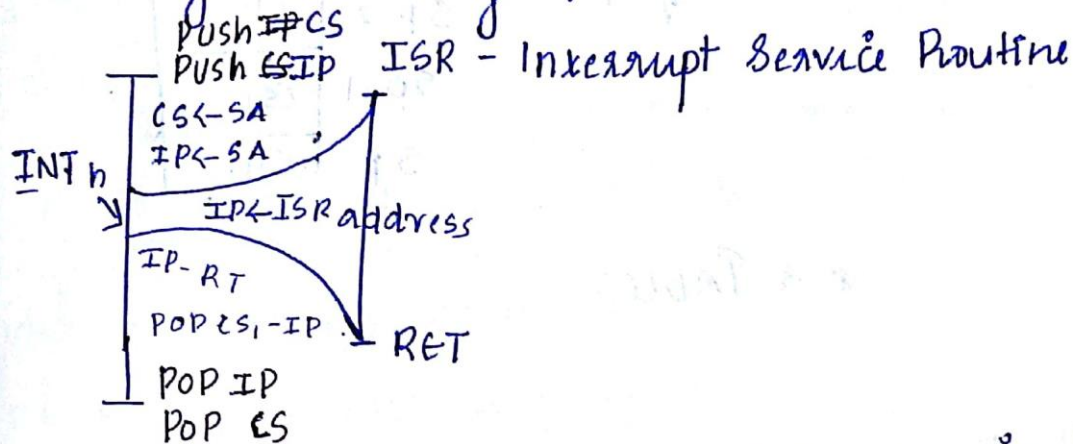 Push CS
Push IP ISR - Interrupt Service Routine
CS<-SA
IP<-SA
INT n
IP<-ISR address
IP-RT
POP CS,-IP
RET
POP IP
POP CS